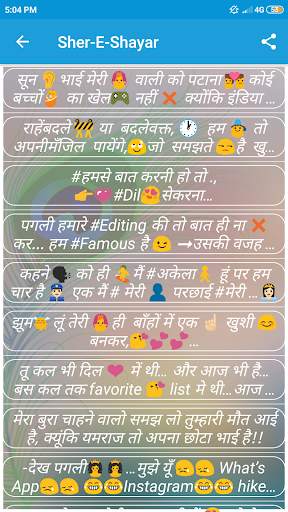 5:04 PM
4G
Sher-E-Shayar
सून👂भाई मेरी👰वाली को पटाना💑कोई
बच्चों👶का खेल🎮नहीं❌क्योंकि इंडिया ...
राहेंबदले🚧या बदलेवक्त,🕐 हम
तो
अपनीमँजिल पायेंगे,
जो समझते😑है खु...
#हमसे बात करनी हो तो .,
👉💘#Dil😍सेकरना...
पगली हमारे #Editing की तो बात ही ना❌
कर... हम #Famous है😉→उसकी वजह ...
कहने🗣को ही
मैं #अकेला
हूं पर हम
चार है👮एक मैं # मेरी👤परछाई #मेरी ...👰
झूम
लूं तेरी👰ही बाँहों में एक☝खुशी😊
बनकर,😘💕💕💕...
तू कल भी दिल❤में थी... और आज भी है...
बस कल तक favorite😘list मे थी...आज ...
मेरा बुरा चाहने वालो समझ लो तुम्हारी मौत आई
है, क्यूंकि यमराज तो अपना छोटा भाई है!!
-देख पगली👸👸...मुझे यूँ😪😪What's
App😪😪😂😂Instagram😂😂hike...